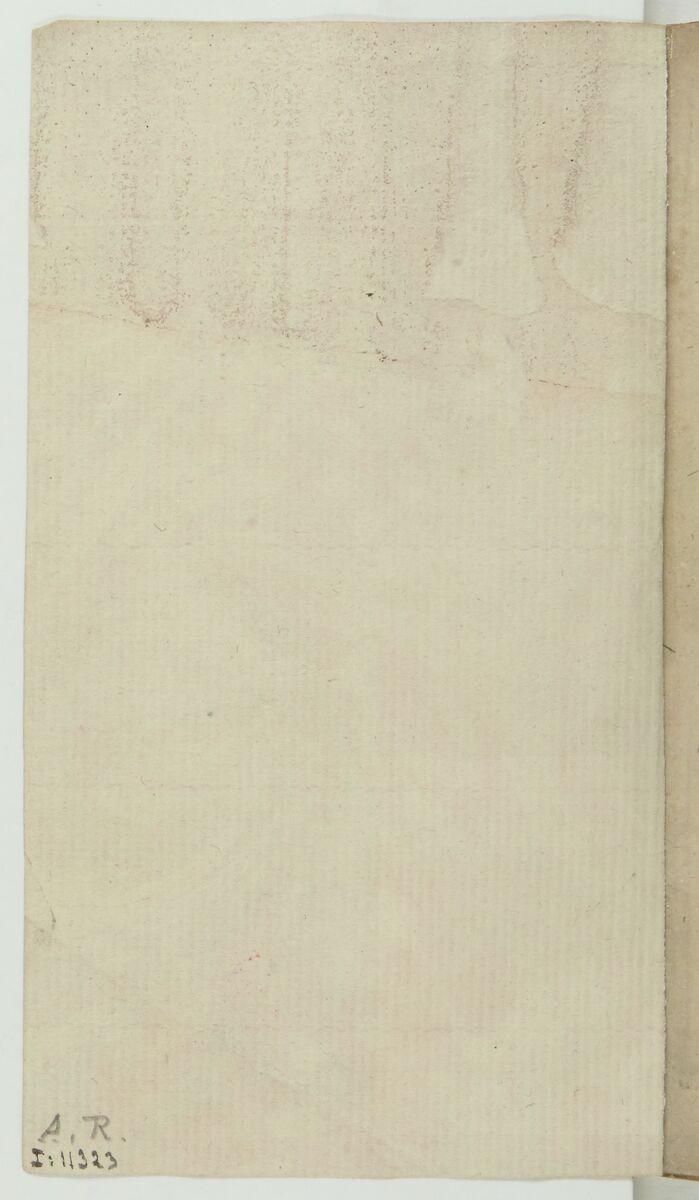 A. R.
I: 11323